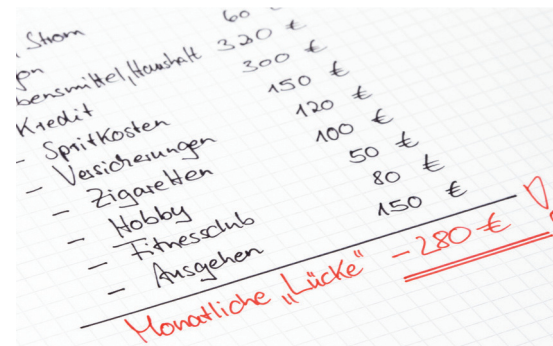 Strom
60 €
bensmittel, Haushalt 320 €
Kredit 300 €
- Spritkosten 150 €
- Versicherungen 120 €
- Zigaretten 100 €
- Hobby 50 €
- Fitnessclub 80 €
- Ausgehen 150 €
Monatliche „Lücke" - 280 € !